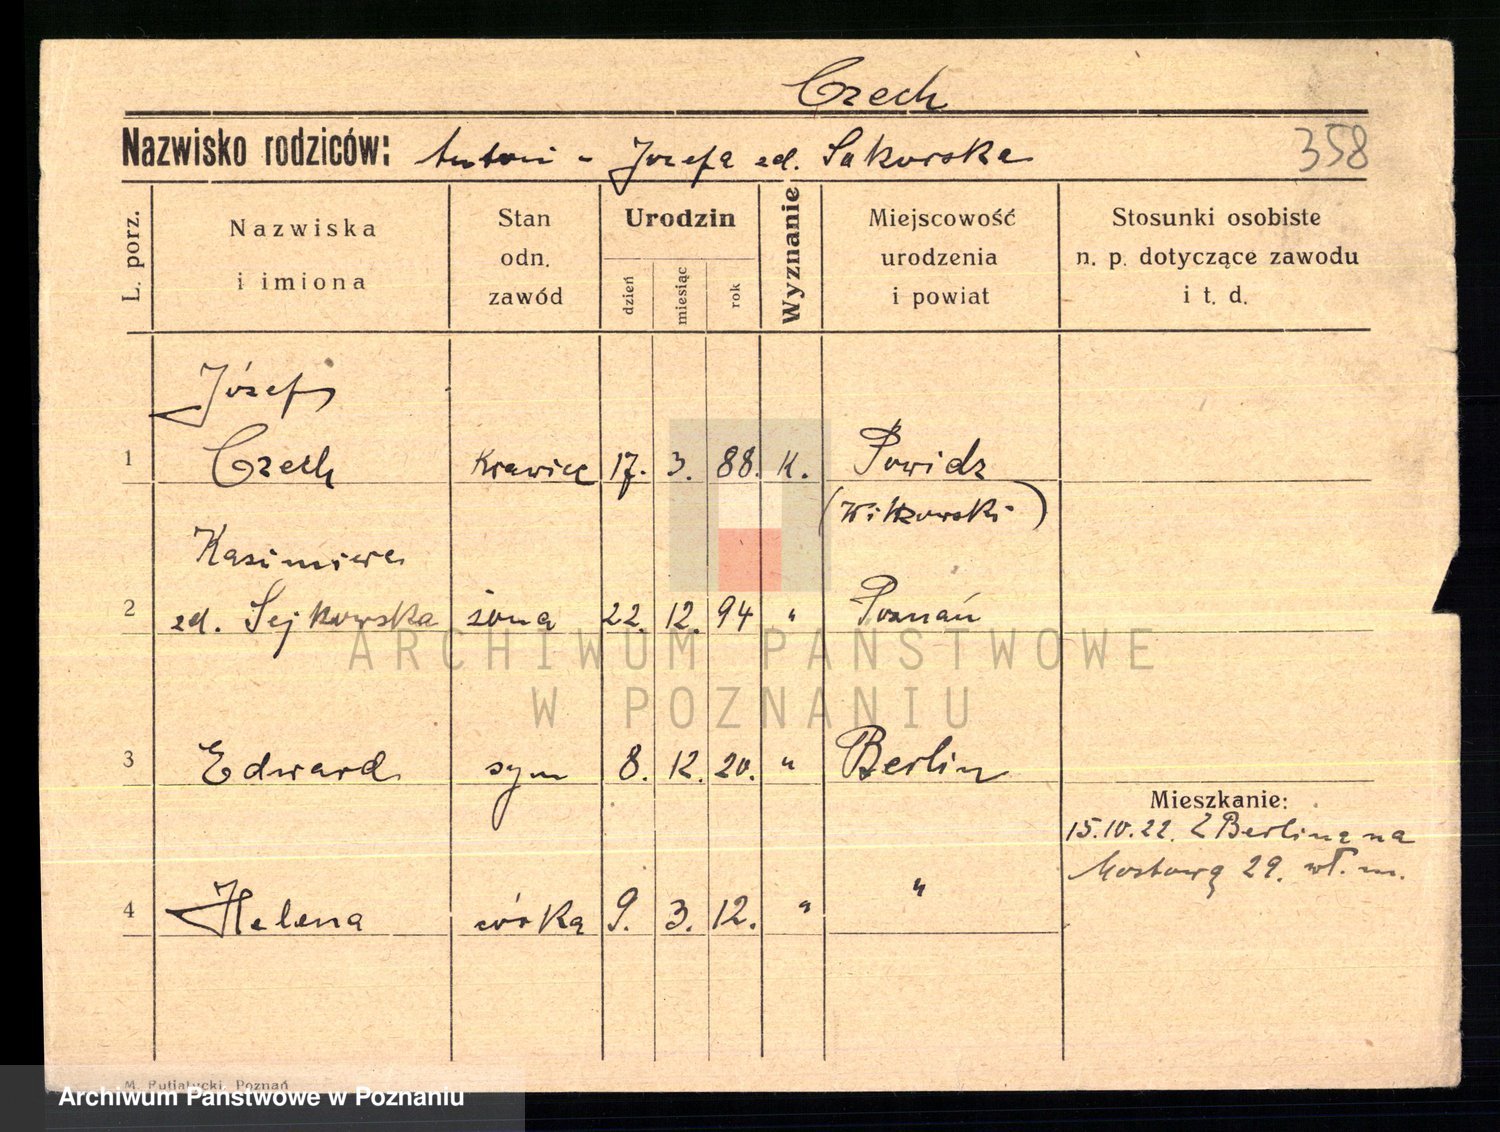 Czech
Nazwisko rodziców: Antoni - Józefa zd. Sikorska 358
L. porz.
Nazwiska
i imiona
Stan
odn.
zawód
Urodzin
dzień
miesiąc
rok
Wyznanie
Miejscowość
urodzenia
i powiat
Stosunki osobiste
n. p. dotyczące zawodu
i t. d.
Józef
1 Czech krawiec 17. 3. 88. K. Powidz
(Witkowski)
Kazimiera
2 zd. Sejkowska żona 22. 12. 94 " Poznań
3 Edward syn 8. 12. 20. " Berlin
Mieszkanie:
15.10.22. Z Berlina na
Mostową 29. wł. m.
4 Helena córka 9. 3. 12. " "
ARCHIWUM PAŃSTWOWE
W POZNANIU
M. Putiatycki, Poznań
Archiwum Państwowe w Poznaniu